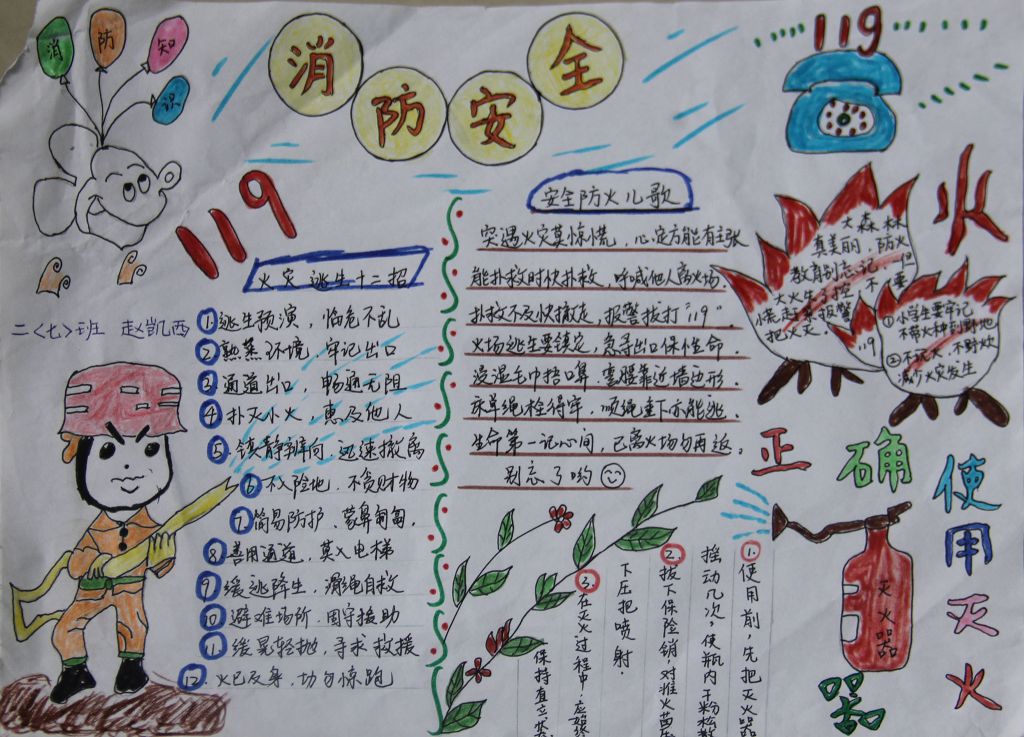 消防知识
消防安全
119
119
二〈七〉班 赵凯西
火灾逃生十二招
1 逃生预演，临危不乱
2 熟悉环境，牢记出口
3 通道出口，畅通无阻
4 扑灭小火，惠及他人
5 镇静辨向，迅速撤离
6 不入险地，不贪财物
7 简易防护，蒙鼻匍匐，
8 善用通道，莫入电梯
9 缓逃降生，滑绳自救
10 避难场所，固守援助
11 缓晃轻抛，寻求救援
12 火已及身，切勿惊跑
安全防火儿歌
突遇火灾莫惊慌，心定方能有主张
能扑救时快扑救，呼喊他人离火场．
扑救不及快撤走，报警拨打"119"．
火场逃生要镇定，急寻出口保性命．
浸湿毛巾捂口鼻．弯腰靠近墙边形．
床单绳栓得牢．顺绳垂下亦能逃．
生命第一记心间，已离火场勿再返．
别忘了哟
火
大森林
真美丽，防火
教育别忘记，但
大火生了控，不要
慌，赶来报警
把火灭．119
①小学生要牢记
不带火种到野地
②不玩火，不野炊
减少火灾发生
正确使用灭火器
灭火器
1. 使用前，先把灭火器
摇动几次，使瓶内干粉松散
2. 拔下保险销，对准火苗
下压把喷射．
3. 在灭火过程中，应始终
保持直立状